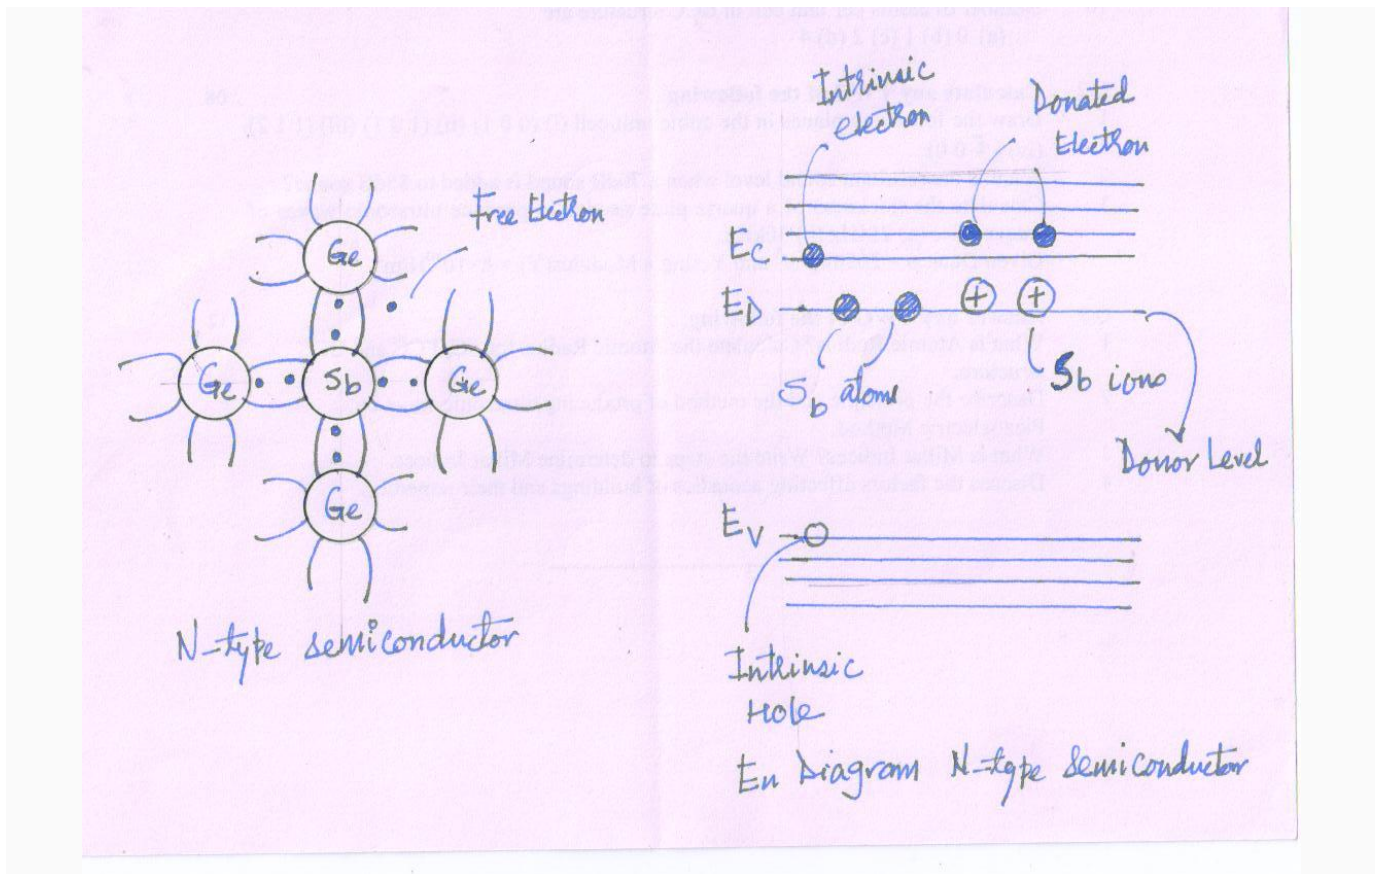 Ge
Free Electron
Ge
Sb
Ge
Ge
N-type semiconductor
Intrinsic
electron
Donated
Electron
Ec
ED
+
+
Sb atoms
Sb ions
Donor Level
Ev
Intrinsic
Hole
En Diagram N-type semiconductor